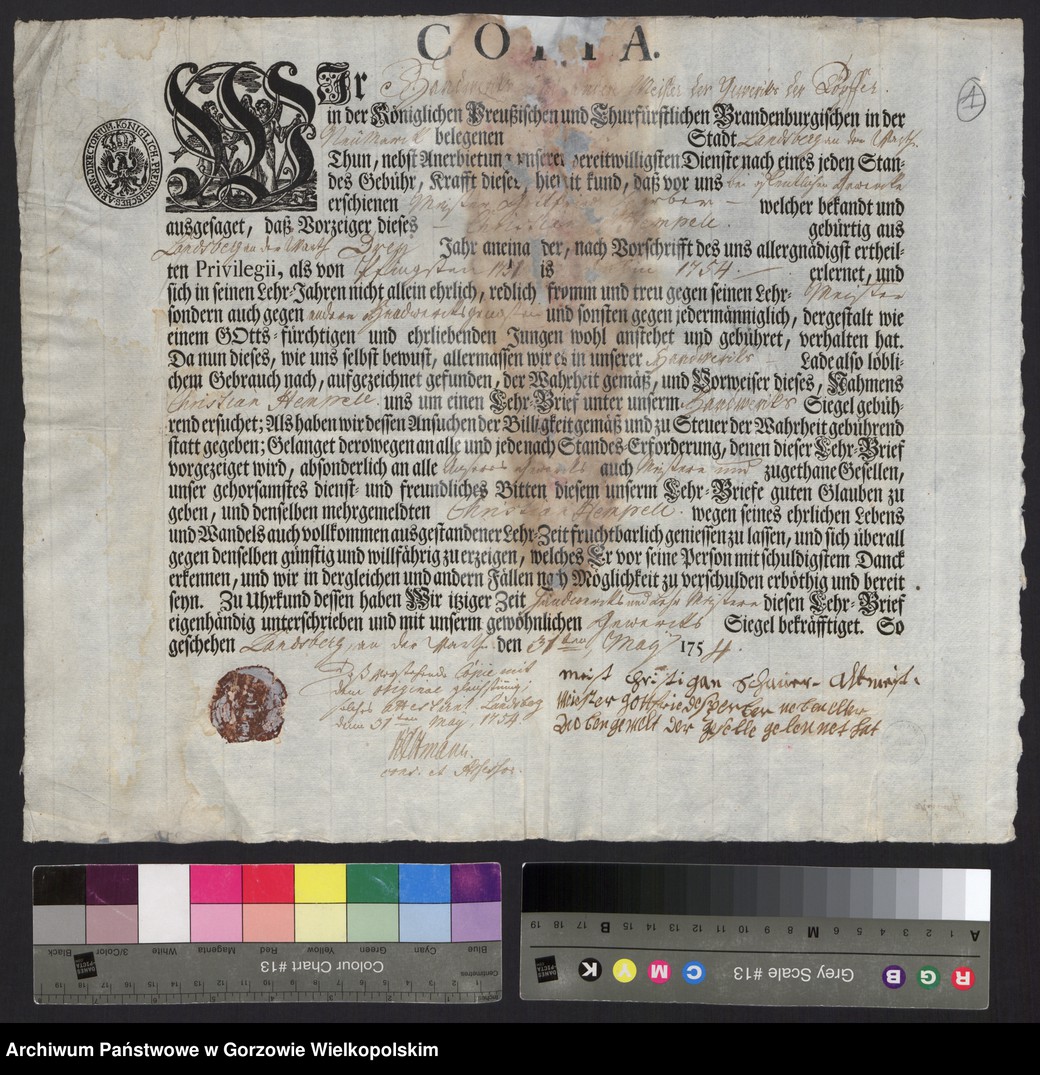 COPIA.
WIr Handwercks Meister des Gewercks der Töpffer.
in der Königlichen Preußischen und Churfürstlichen Brandenburgischen in der
Neumarck belegenen Stadt Landsberg an der Warthe
Thun, nebst Anerbietung unserer bereitwilligsten Dienste nach eines jeden Stan-
des Gebühr, Krafft dieses, hiermit kund, daß vor uns
erschienen Meister welcher bekandt und
ausgesaget, daß Vorzeiger dieses Christian Hempell. gebürtig aus
Landsberg an der Warth Drey Jahr aneinander, nach Vorschrifft des uns allergnädigst ertheil-
ten Privilegii, als von Pfingsten 1751 bis 1754. erlernet, und
sich in seinen Lehr-Jahren nicht allein ehrlich, redlich fromm und treu gegen seinen Lehr-Meister
sondern auch gegen andere und sonsten gegen jedermänniglich, dergestalt wie
einem GOtts-fürchtigen und ehrliebenden Jungen wohl anstehet und gebühret, verhalten hat.
Da nun dieses, wie uns selbst bewust, allermassen wir es in unserer Handwercks Lade also löbli-
chem Gebrauch nach, aufgezeichnet gefunden, der Wahrheit gemäß, und Vorweiser dieses, Nahmens
Christian Hempell. uns um einen Lehr-Brief unter unserm Handwercks Siegel gebüh-
rend ersuchet; Als haben wir dessen Ansuchen der Billigkeit gemäß und zu Steuer der Wahrheit gebührend
statt gegeben; Gelanget derowegen an alle und jede nach Standes-Erforderung, denen dieser Lehr-Brief
vorgezeiget wird, absonderlich an alle Unseres Gewercks auch Meistere und zugethane Gesellen,
unser gehorsamstes dienst- und freundliches Bitten diesem unserm Lehr-Briefe guten Glauben zu
geben, und denselben mehrgemeldten Christian Hempell. wegen seines ehrlichen Lebens
und Wandels auch vollkommen ausgestandener Lehr-Zeit fruchtbarlich geniessen zu lassen, und sich überall
gegen denselben günstig und willfährig zu erzeigen, welches Er vor seine Person mit schuldigstem Danck
erkennen, und wir in dergleichen und andern Fällen nach Möglichkeit zu verschulden erböthig und bereit
seyn. Zu Uhrkund dessen haben Wir itziger Zeit Handwercks und Meistere diesen Lehr-Brief
eigenhändig unterschrieben und mit unserm gewöhnlichen Gewercks Siegel bekräfftiget. So
geschehen Landsberg an der Warthe den 31ten May 1754.
Daß vorstehende Copie mit
dem Original
solches attestiret Landsberg
denn 31ten May. 1754.
et Assessor.
meist christigan Altmeist.
meister gottfried
der geselle gelernet hat
1
KÖNIGLICH. PREUSSISCHES ARMEN. DIRECTORIUM.
Blue Cyan Green Yellow Red Magenta White 3/Color Black
Colour Chart #13
Centimetres
Inches
DANES PICTA
A 1 2 3 4 5 6 M 8 9 10 11 12 13 14 15 B 17 18 19
Grey Scale #13
R G B C M Y K
DANES PICTA
Archiwum Państwowe w Gorzowie Wielkopolskim